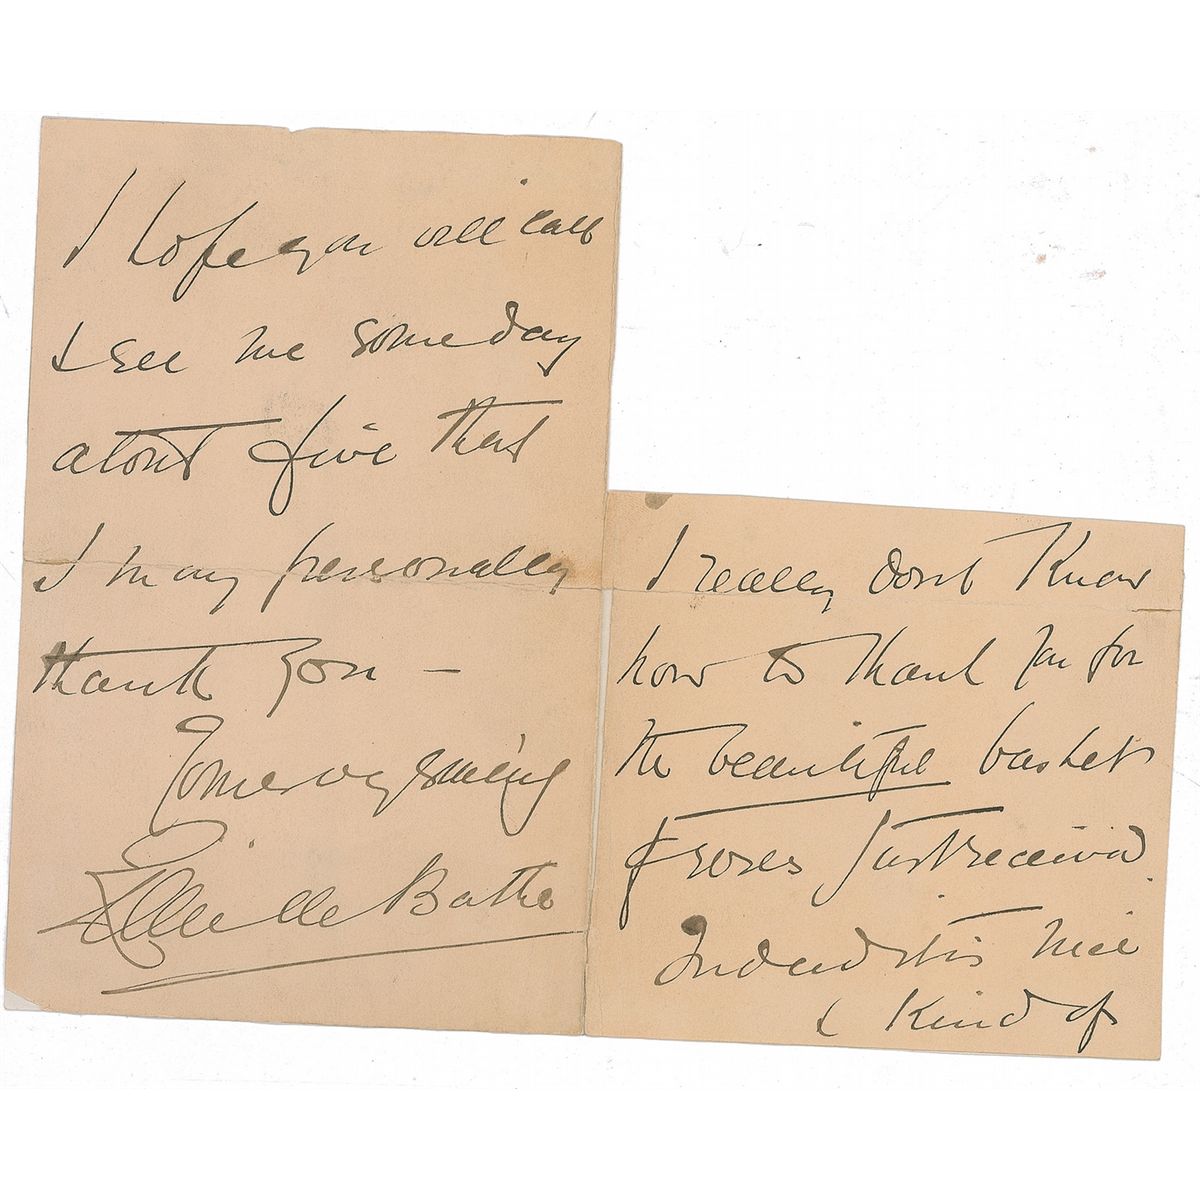 I really dont Know
how to thank you for
the beautiful basket
of roses just received.
Indeed it is nice
& Kind of
I hope you will call
& see me some day
about five that
I may personally
thank you –
Yours very sincerely
Lillie de Bathe